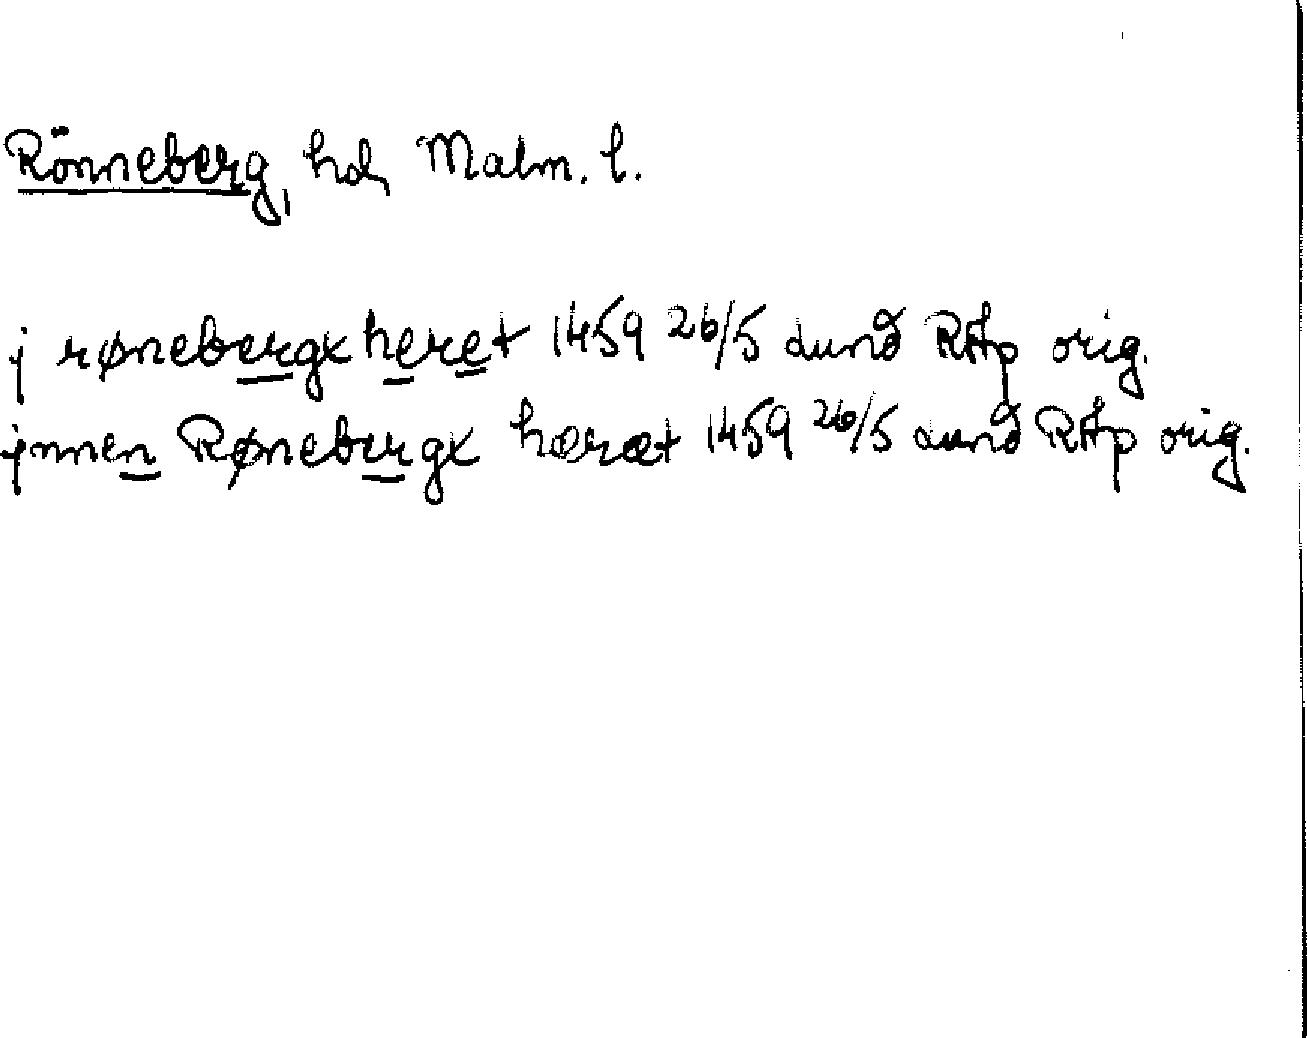 Rönneberg, hd, Malm. l.
j rønebergx heret 1459 26/5 Lund RAp orig.
jnnen Rønebergx hæræt 1459 26/5 Lund RAp orig.